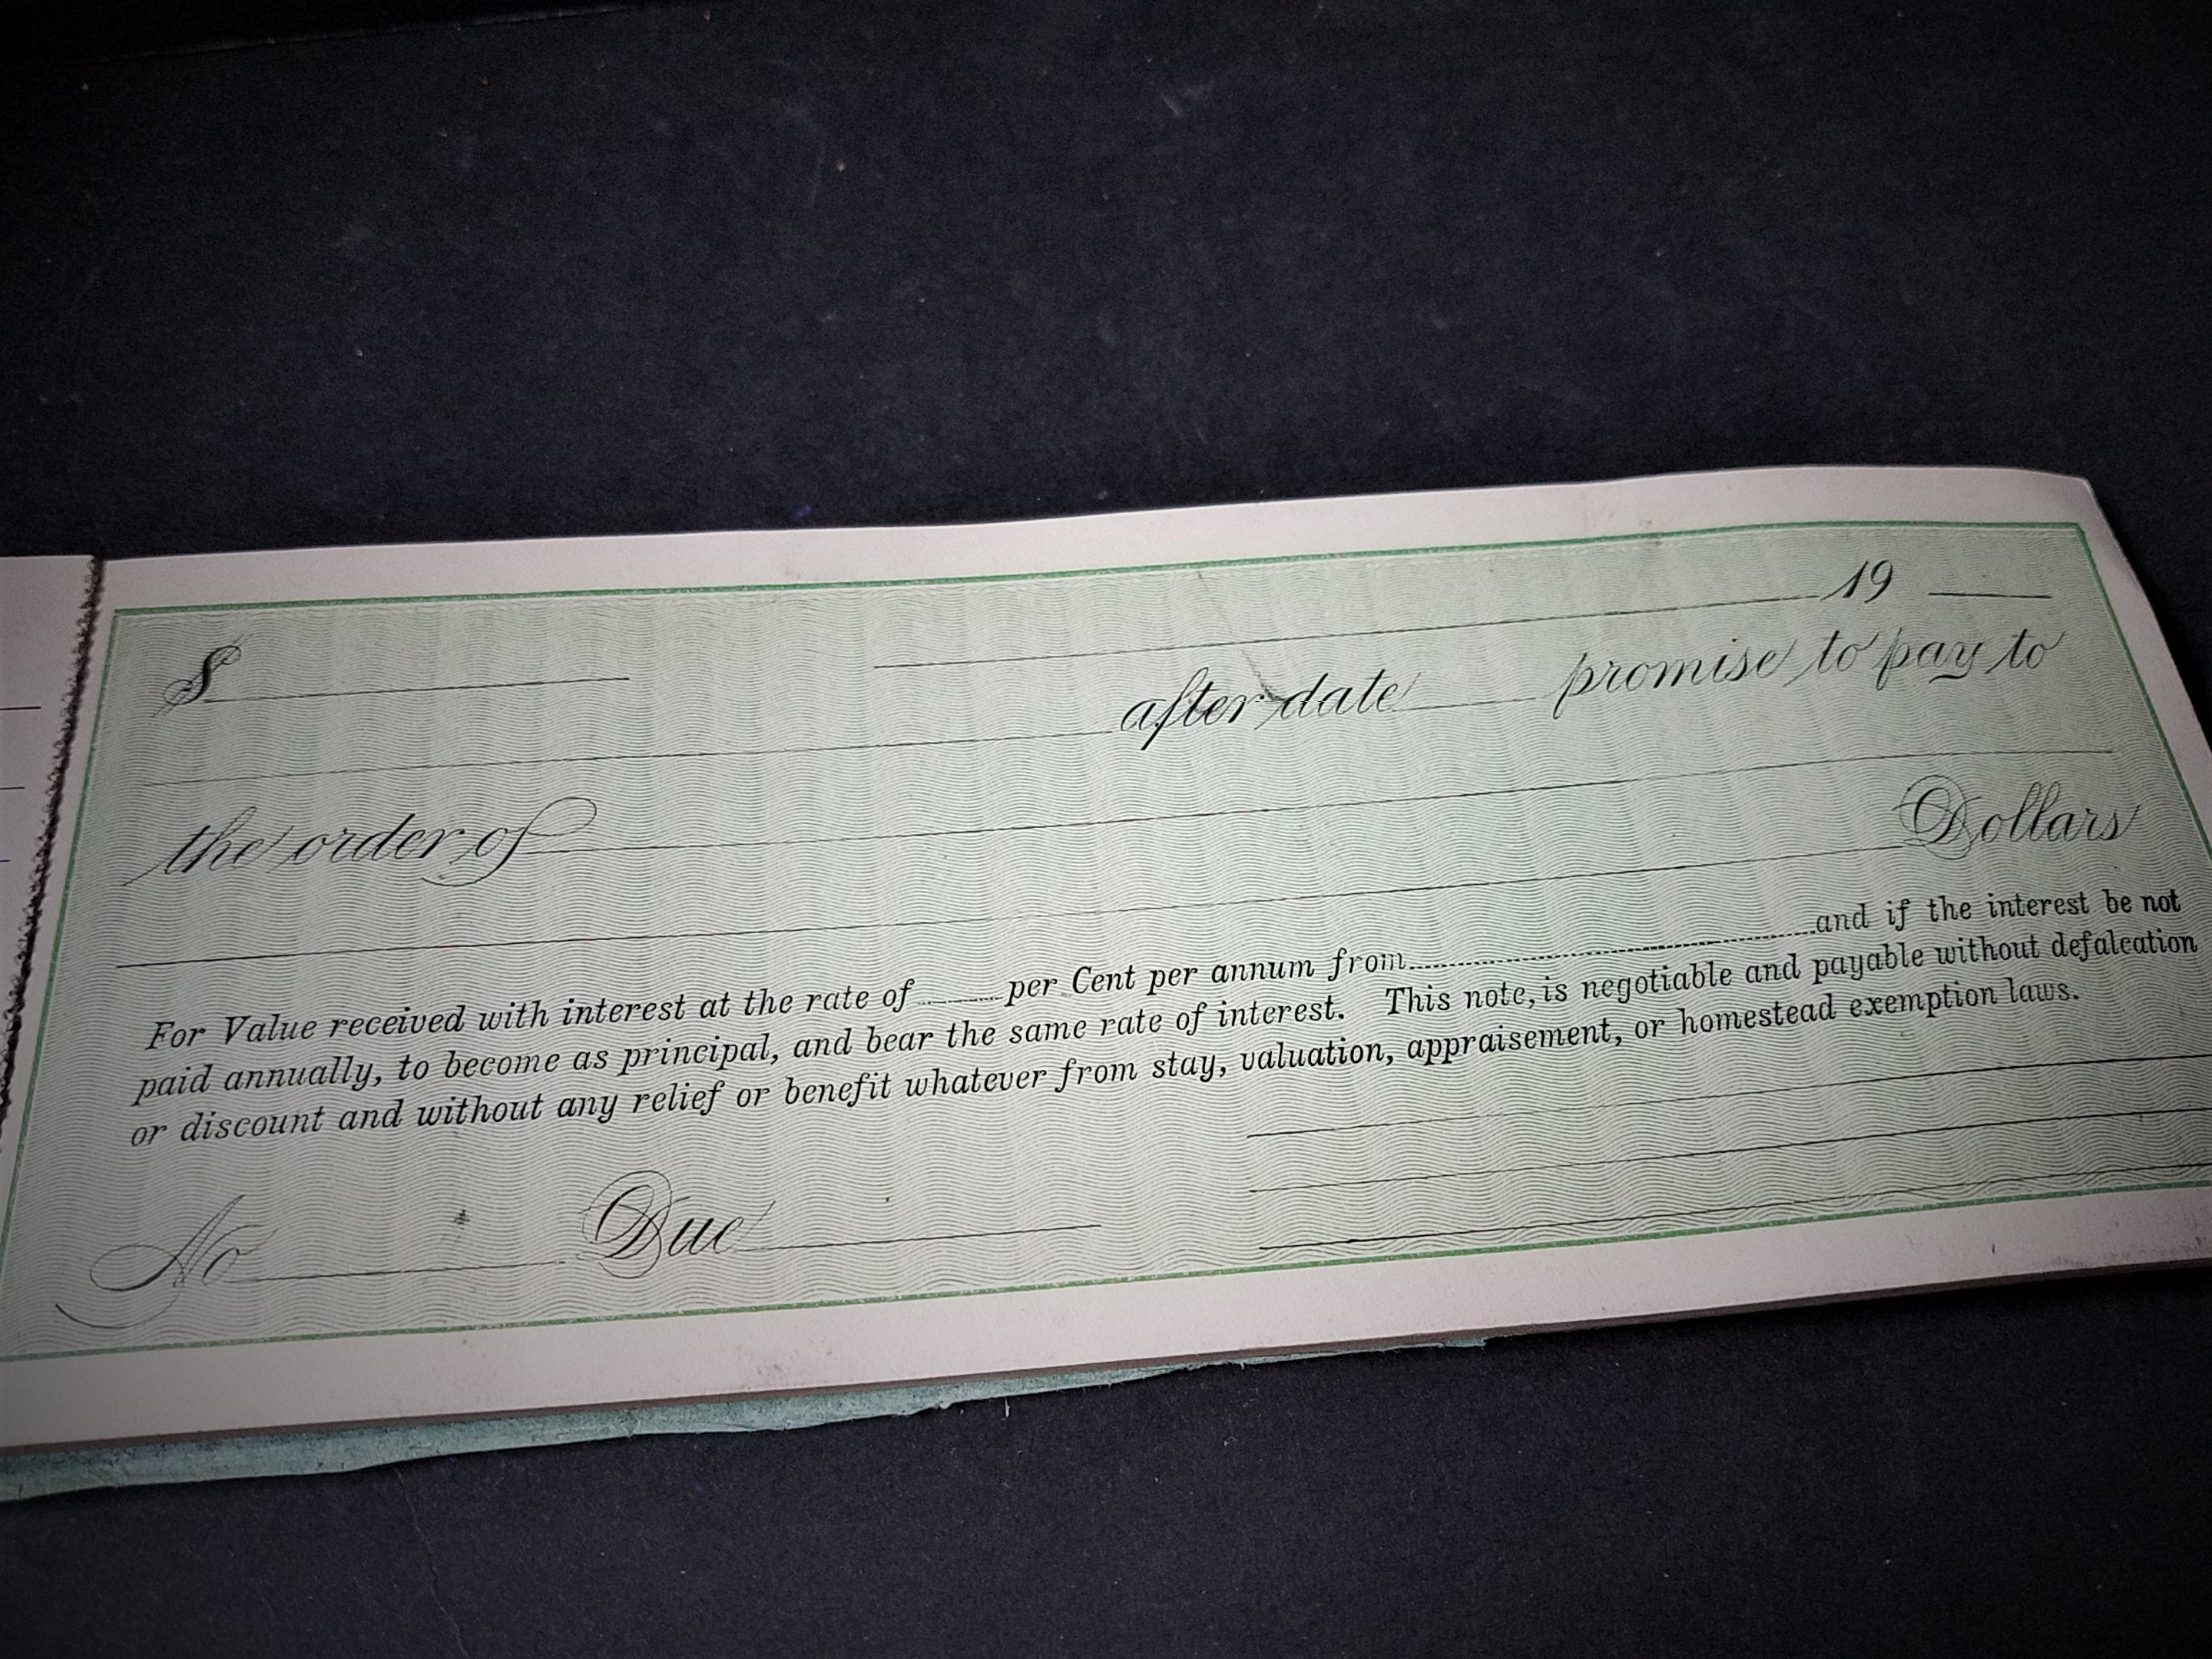 19
$
after date promise to pay to
the order of
Dollars
For Value received with interest at the rate of per Cent per annum from and if the interest be not
paid annually, to become as principal, and bear the same rate of interest. This note, is negotiable and payable without defalcation
or discount and without any relief or benefit whatever from stay, valuation, appraisement, or homestead exemption laws.
No Due